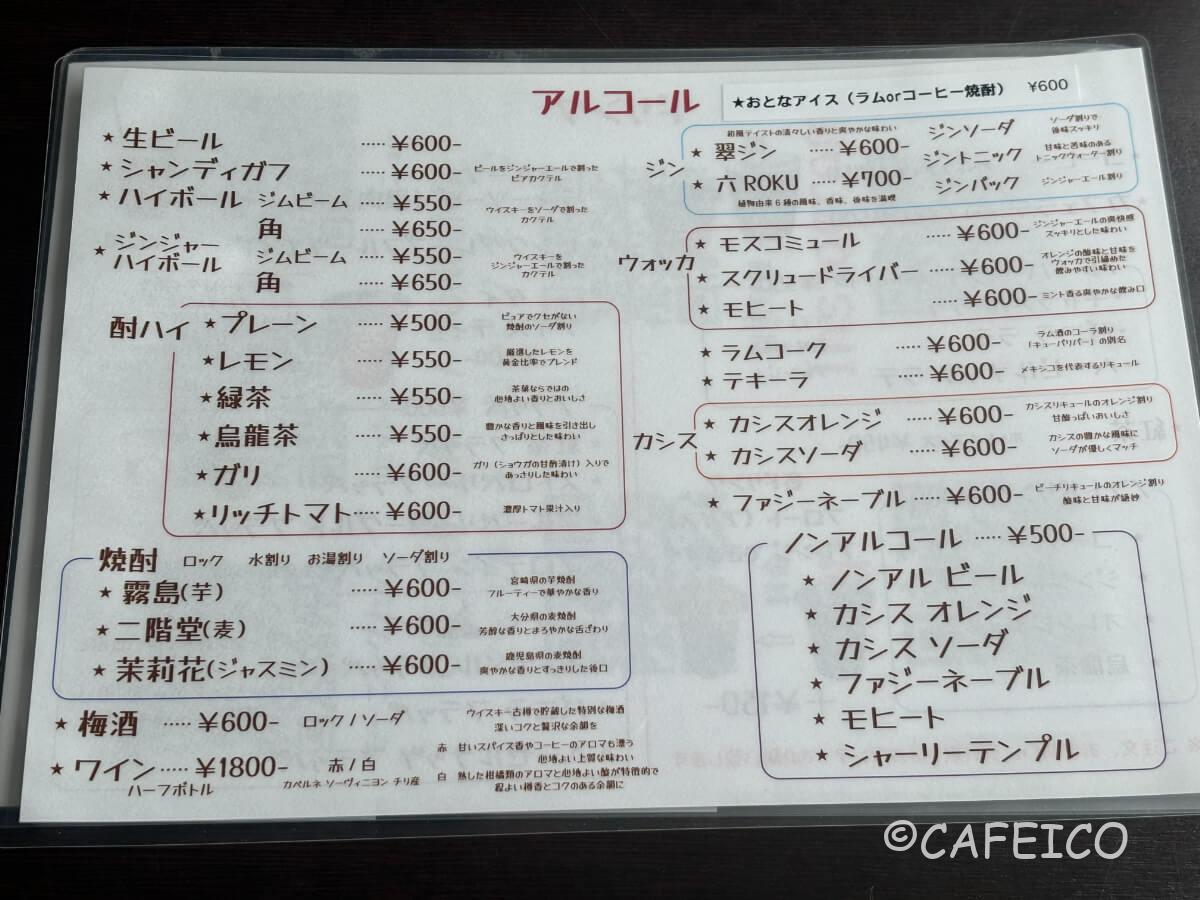 アルコール
★おとなアイス（ラムorコーヒー焼酎） ¥600
★生ビール ····· ¥600-
★シャンディガフ ¥600- ビールをジンジャーエールで割った
ビアカクテル
★ハイボール ジムビーム ····· ¥550- ウイスキーをソーダで割った
カクテル
角 ····· ¥650-
★ジンジャー
ハイボール ジムビーム ····· ¥550- ウイスキーを
ジンジャーエールで割った
カクテル
角 ····· ¥650-
酎ハイ
★プレーン ····· ¥500- ピュアでクセがない
焼酎のソーダ割り
★レモン ····· ¥550- 厳選したレモンを
黄金比率でブレンド
★緑茶 ····· ¥550- 茶葉ならではの
心地よい香りとおいしさ
★烏龍茶 ····· ¥550- 豊かな香りと風味を引き出し
さっぱりとした味わい
★ガリ ····· ¥600- ガリ（ショウガの甘酢漬け）入りで
あっさりした味わい
★リッチトマト ····· ¥600- 濃厚トマト果汁入り
焼酎 ロック 水割り お湯割り ソーダ割り
★霧島(芋) ····· ¥600- 宮崎県の芋焼酎
フルーティーで華やかな香り
★二階堂(麦) ····· ¥600- 大分県の麦焼酎
芳醇な香りとまろやかな舌ざわり
★茉莉花(ジャスミン) ····· ¥600- 鹿児島県の麦焼酎
爽やかな香りとすっきりした後口
★梅酒 ····· ¥600- ロック / ソーダ ウイスキー古樽で貯蔵した特別な梅酒
深いコクと贅沢な余韻を
★ワイン ····· ¥1800- 赤 / 白
ハーフボトル カベルネ ソーヴィニヨン チリ産
赤 甘いスパイス香やコーヒーのアロマも漂う
心地よい上質な味わい
白 熟した柑橘類のアロマと心地よい酸が特徴的で
程よい樽香とコクのある余韻に
ジン
和風テイストの清々しい香りと爽やかな味わい
★翠ジン ····· ¥600-
★六 ROKU ····· ¥700-
植物由来6種の風味、香味、後味を満喫
ジンソーダ ソーダ割りで
後味スッキリ
ジントニック 甘味と苦味のある
トニックウォーター割り
ジンバック ジンジャーエール割り
ウォッカ
★モスコミュール ····· ¥600- ジンジャーエールの爽快感
スッキリとした味わい
★スクリュードライバー ····· ¥600- オレンジの酸味と甘味を
ウォッカで引締めた
飲みやすい味わい
★モヒート ····· ¥600- ミント香る爽やかな飲み口
★ラムコーク ····· ¥600- ラム酒のコーラ割り
「キューバリバー」の別名
★テキーラ ····· ¥600- メキシコを代表するリキュール
カシス
★カシスオレンジ ····· ¥600- カシスリキュールのオレンジ割り
甘酸っぱいおいしさ
★カシスソーダ ····· ¥600- カシスの豊かな風味に
ソーダが優しくマッチ
★ファジーネーブル ····· ¥600- ピーチリキュールのオレンジ割り
酸味と甘味が絶妙
ノンアルコール ····· ¥500-
★ノンアル ビール
★カシス オレンジ
★カシス ソーダ
★ファジーネーブル
★モヒート
★シャーリーテンプル
©CAFEICO